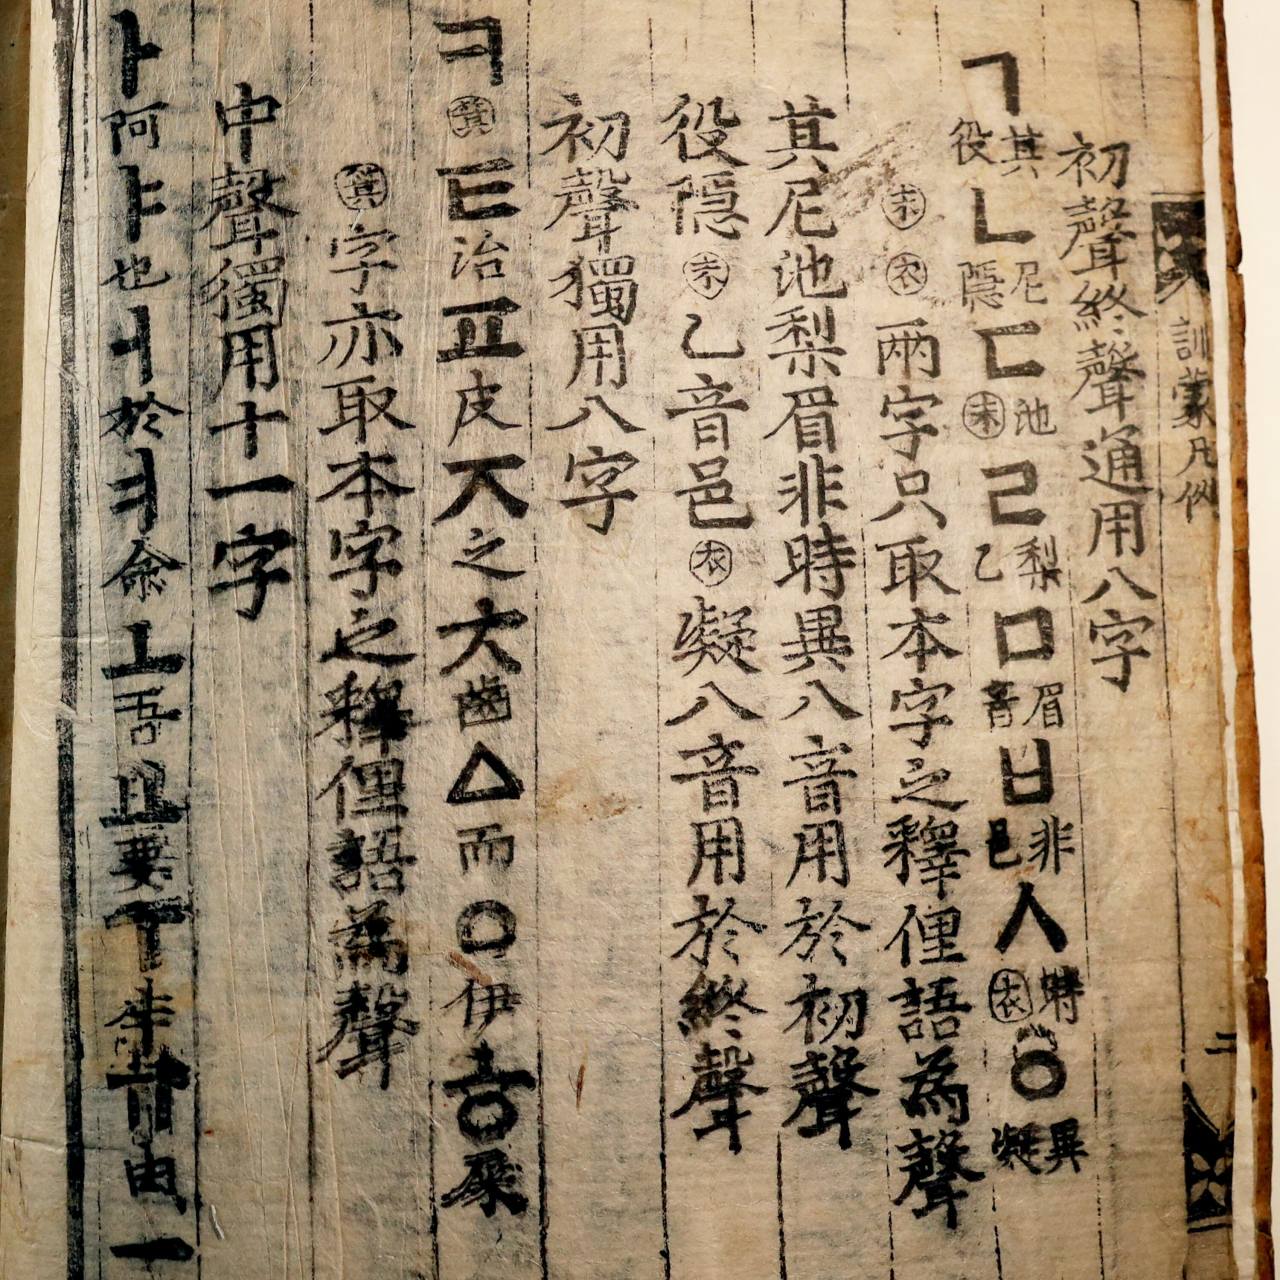 訓蒙凡例
二
初聲終聲通用八字
ㄱ其役ㄴ尼隱ㄷ池末ㄹ梨乙ㅁ眉音ㅂ非邑ㅅ時衣ㆁ異凝
末衣兩字只取本字之釋俚語為聲
其尼池梨眉非時異八音用於初聲
役隱末乙音邑衣凝八音用於終聲
初聲獨用八字
ㅋ箕ㅌ治ㅍ皮ㅈ之ㅊ齒ㅿ而ㅇ伊ㅎ屎
箕字亦取本字之釋俚語為聲
中聲獨用十一字
ㅏ阿ㅑ也ㅓ於ㅕ余ㅗ吾ㅛ要ㅜ牛ㅠ由ㅡ